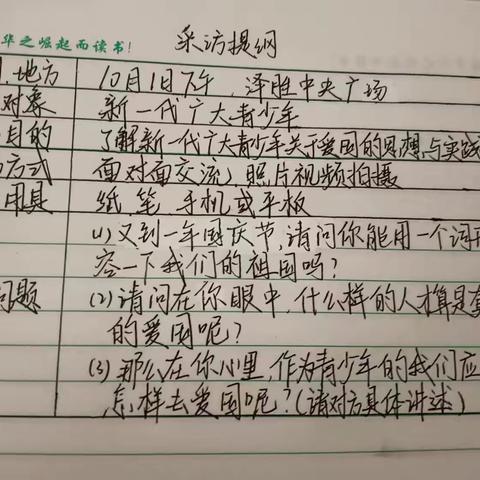 华之崛起而读书!
采访提纲
地方 10月1日下午，泽胜中央广场
对象 新一代广大青少年
目的 了解新一代广大青少年关于爱国的思想与实践
方式 面对面交流，照片视频拍摄
用具 纸、笔、手机或平板
(1)又到一年国庆节，请问你能用一个词形
容一下我们的祖国吗？
问题 (2)请问在你眼中，什么样的人才算是真
的爱国呢？
(3)那么在你心里，作为青少年的我们应
怎样去爱国呢？(请对方具体讲述)